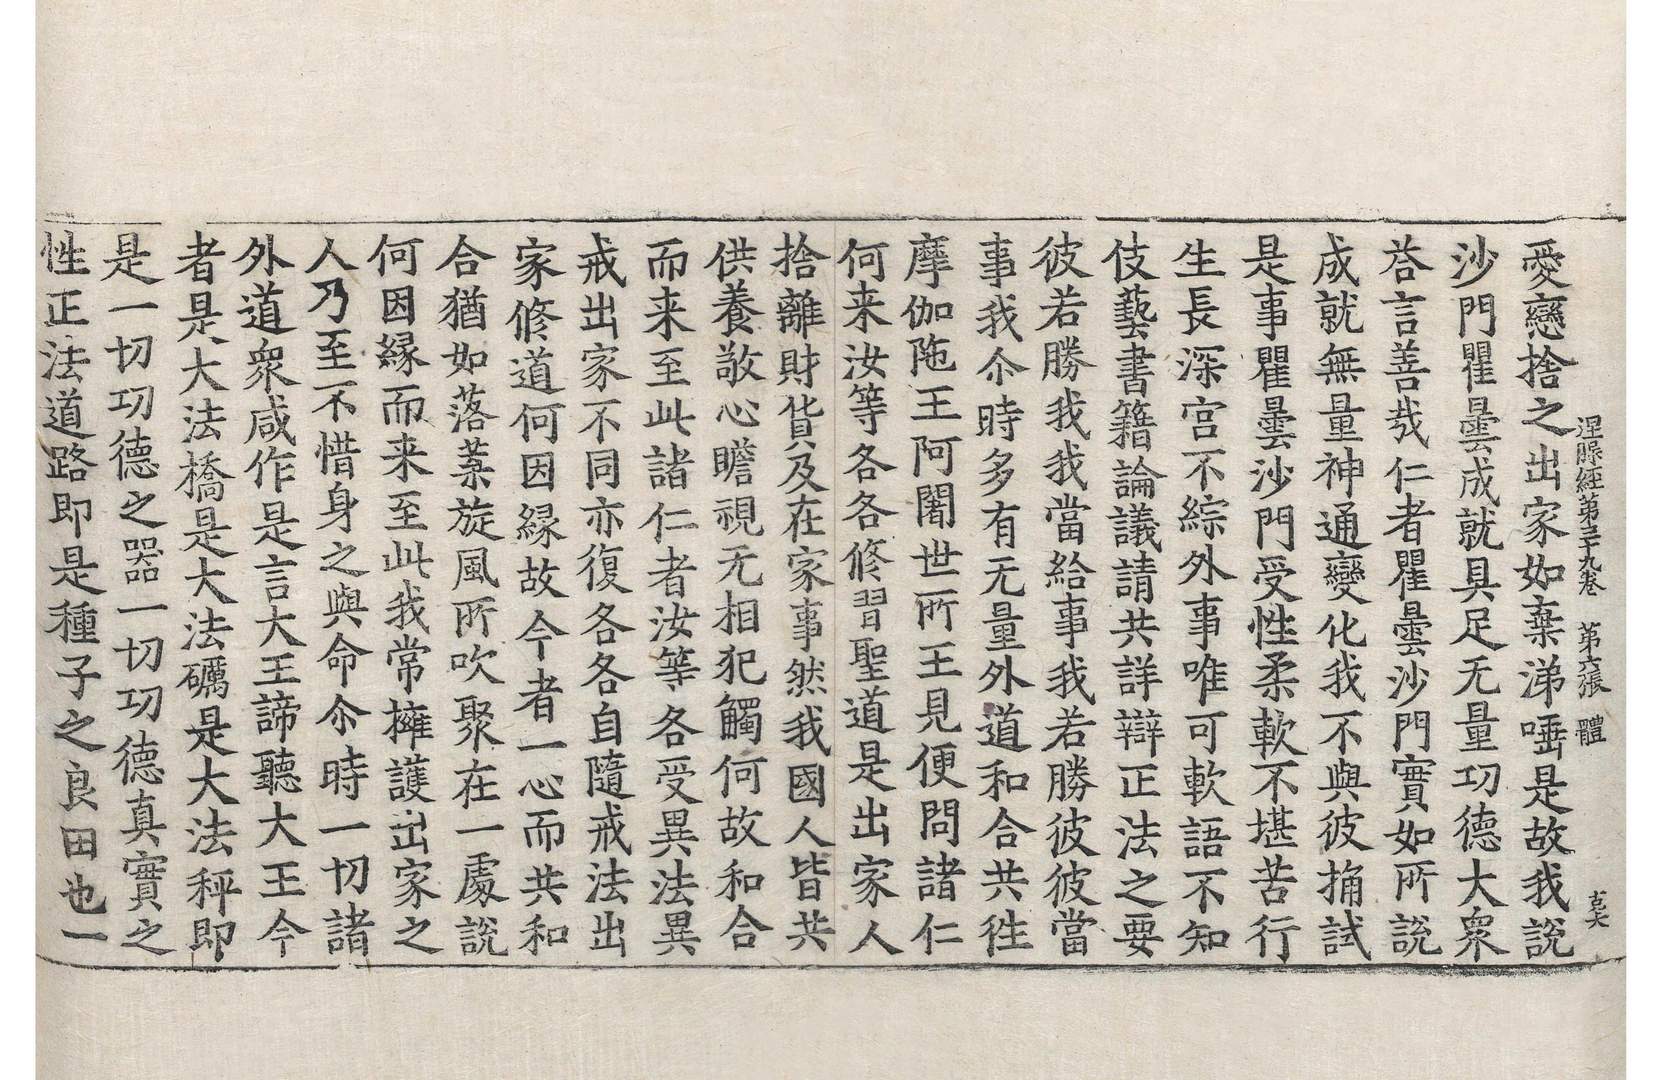 涅槃經第三十九卷　第六張　體　克大
愛戀捨之出家如棄涕唾是故我說
沙門瞿曇成就具足无量功德大衆
荅言善哉仁者瞿曇沙門實如所說
成就無量神通變化我不與彼捔試
是事瞿曇沙門受性柔軟不堪苦行
生長深宮不綜外事唯可軟語不知
伎藝書籍論議請共詳辯正法之要
彼若勝我我當給事我若勝彼彼當
事我尒時多有无量外道和合共徃
摩伽陁王阿闍世所王見便問諸仁
何来汝等各各修習聖道是出家人
捨離財貨及在家事然我國人皆共
供養敬心瞻視无相犯觸何故和合
而来至此諸仁者汝等各受異法異
戒出家不同亦復各各自隨戒法出
家修道何因緣故今者一心而共和
合猶如落葉旋風所吹聚在一處說
何因緣而来至此我常擁護出家之
人乃至不惜身之與命尒時一切諸
外道衆咸作是言大王諦聽大王今
者是大法橋是大法礪是大法秤即
是一切功德之器一切功德真實之
性正法道路即是種子之良田也一